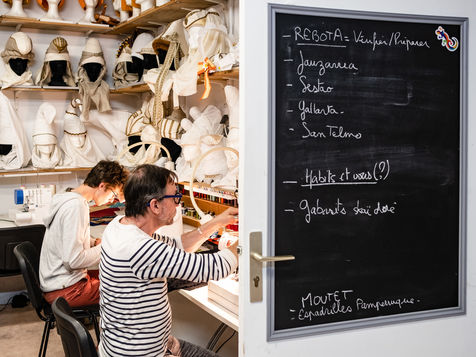 - REBOTA: Vérifier/Préparer
- Jauzarrea
- Sestao
- Gallarta.
- San Telmo
- Habits et vous (?)
- Gabarits skaï doré
MOUTET
Espadrilles Pamperruque.